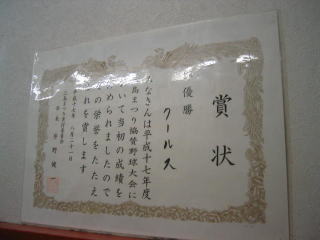 賞状
優勝
クールス
みなさんは平成十七年度
島まつり協賛野球大会に
いて当初の成績を
められましたので
の栄誉をたたえ
れを賞します
平成十七年 八月二十一日